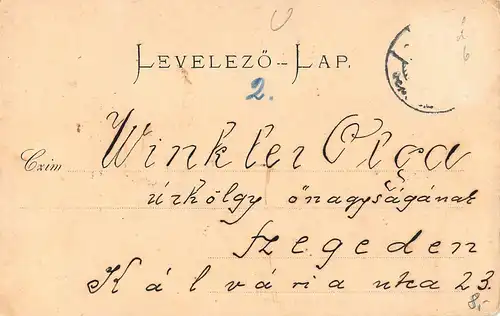 LEVELEZŐ-LAP.
2.
Czím Winkler Olga
úrhölgy őnagyságának
Szegeden
Kálvária utca 23.
8,-